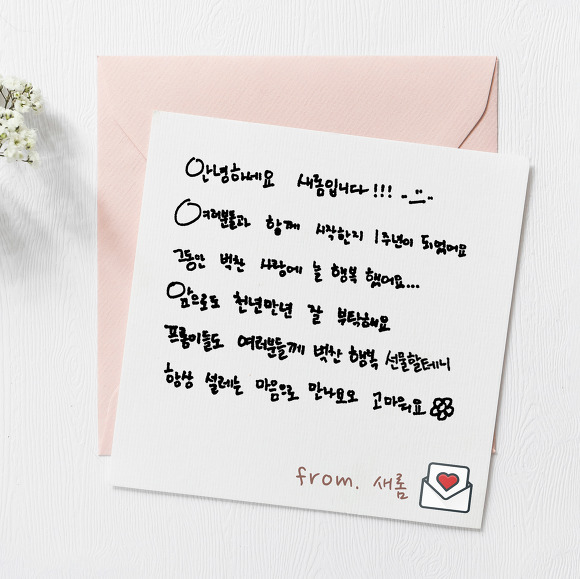 안녕하세요 새롬입니다!!!
여러분들과 함께 시작한지 1주년이 되었어요
그동안 벅찬 사랑에 늘 행복 했어요...
앞으로도 천년만년 잘 부탁해요
프롬이들도 여러분들께 벅찬 행복 선물할테니
항상 설레는 마음으로 만나보오 고마워요
from. 새롬